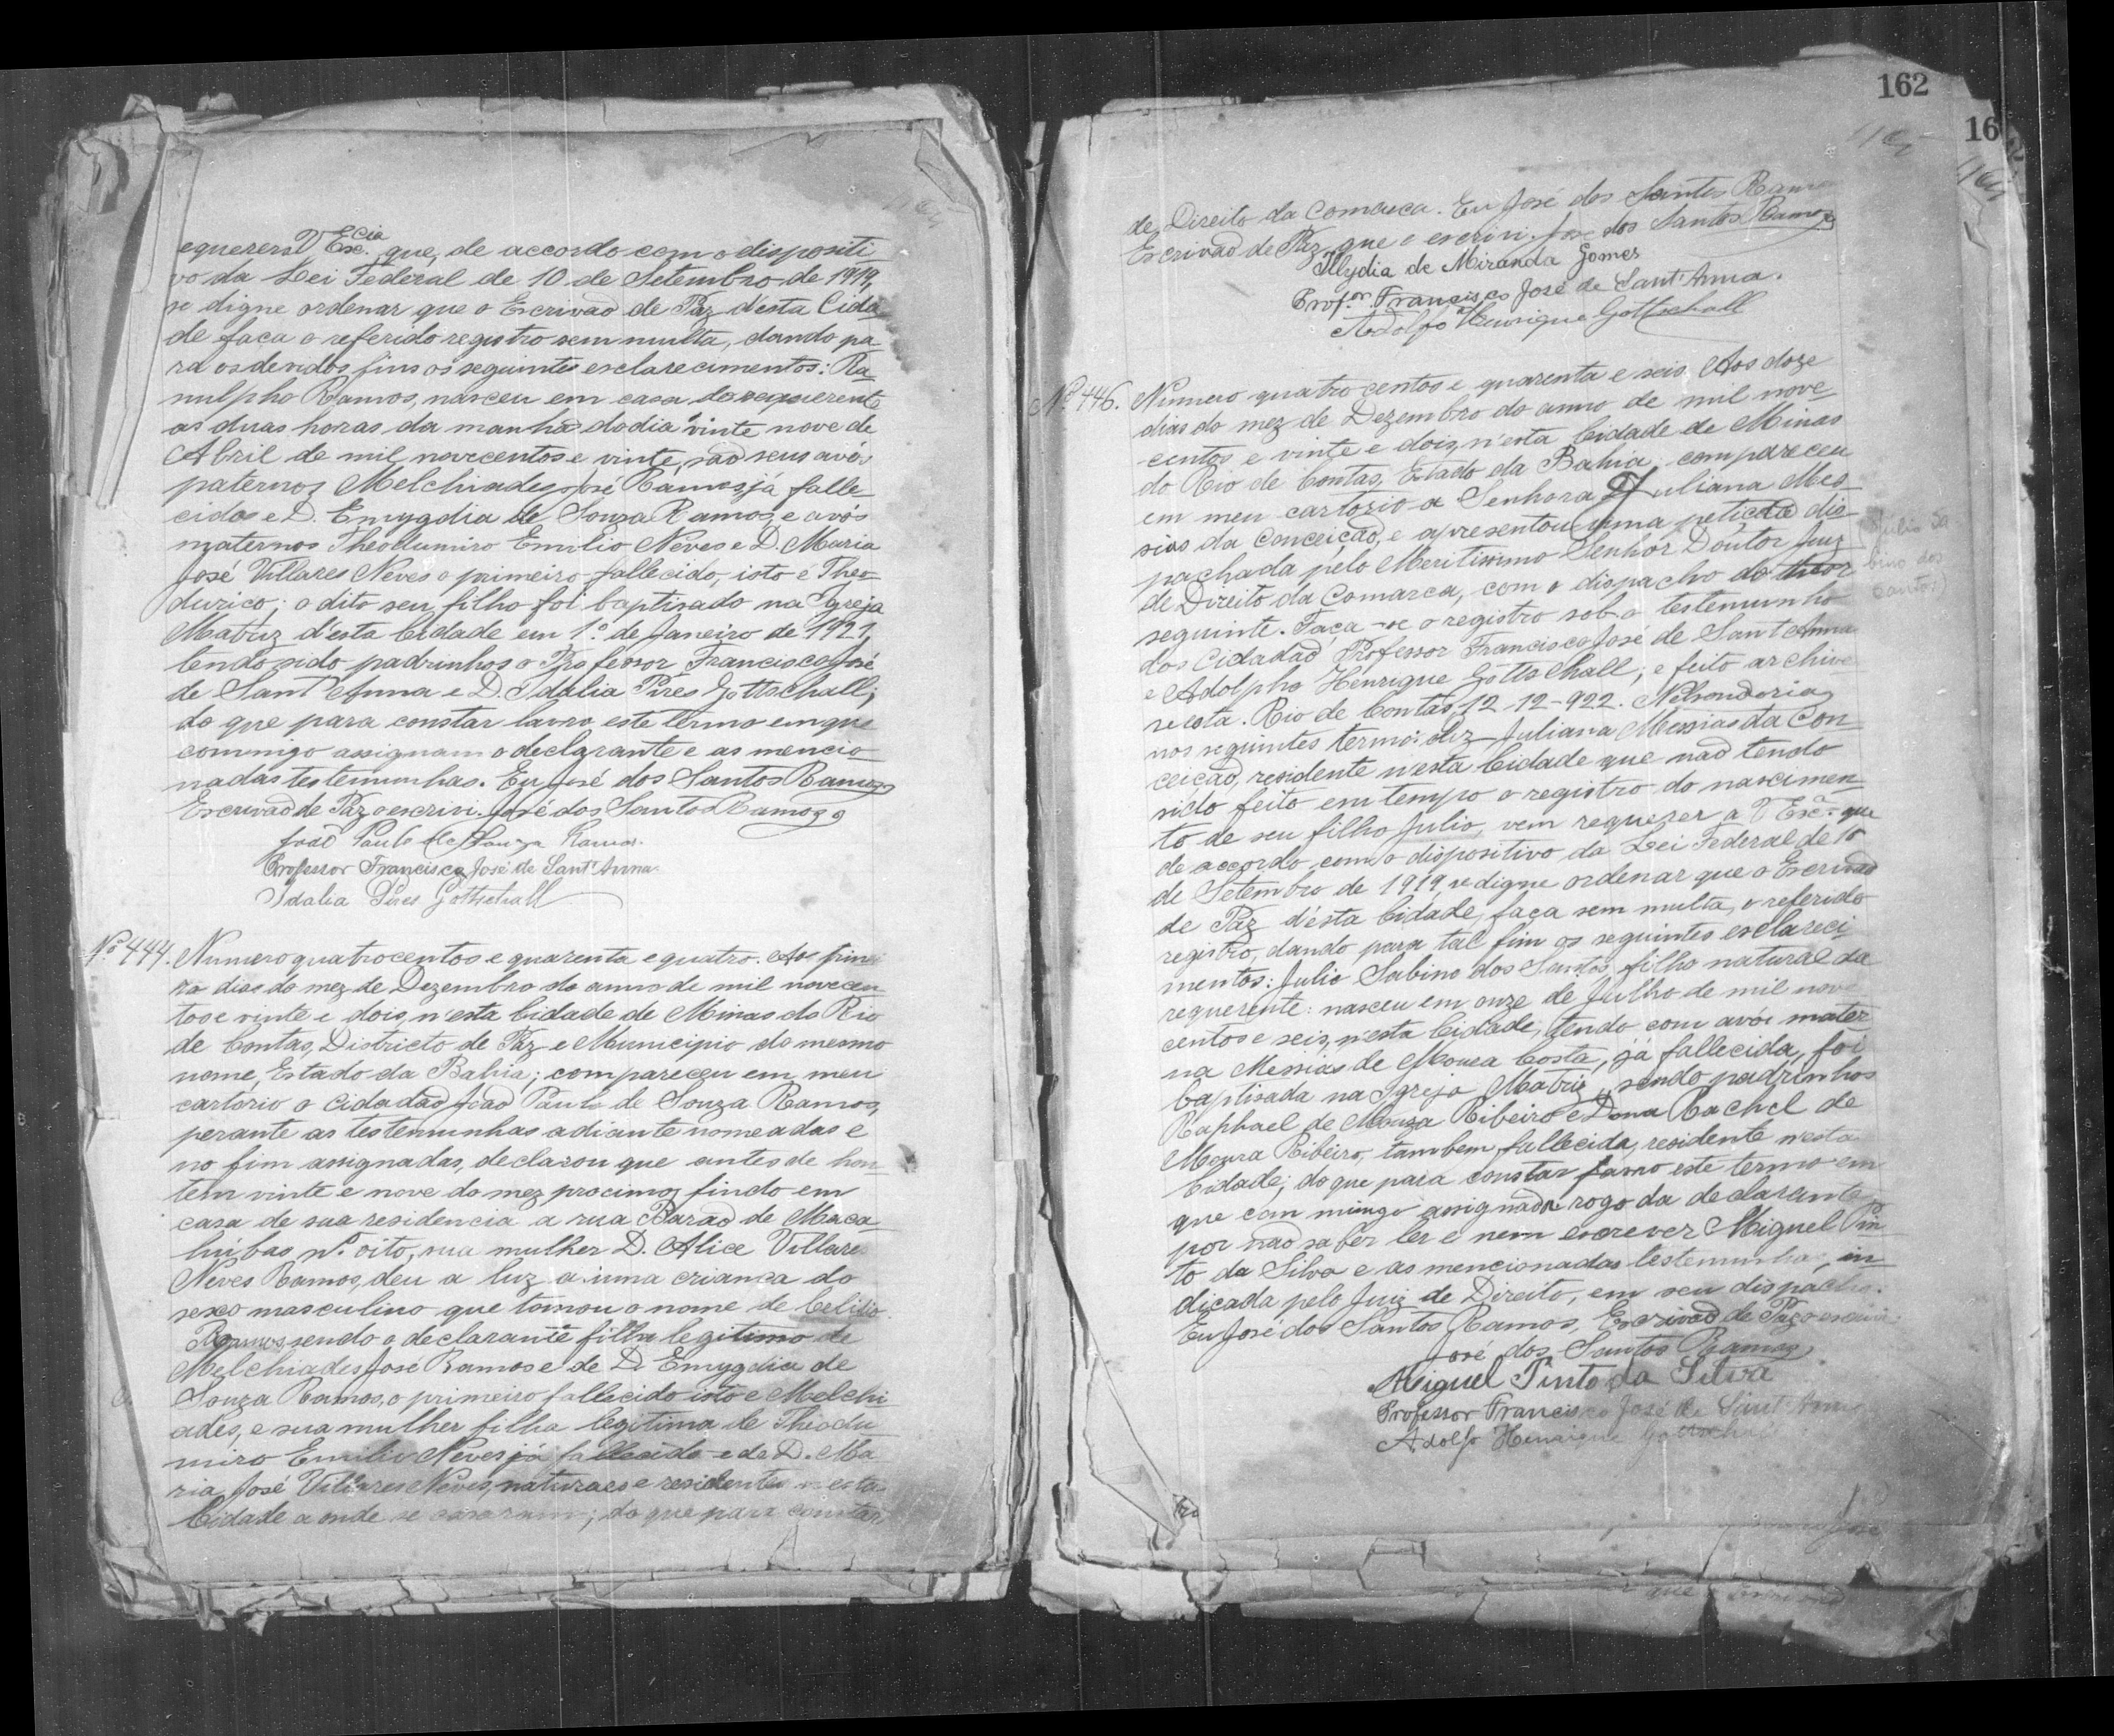 equerer a V Exc.cia que, de accordo com o dispositi
vo da Lei Federal de 10 de Setembro de 1919,
se digne ordenar que o Escrivão de Paz d'esta Cida
de faca o referido registro sem multa, dando pa-
ra os devidos fins os seguintes esclarecimentos: Ra-
nulpho Ramos, nasceu em casa do requerente
as duas horas da manhã do dia vinte nove de
Abril de mil novecentos e vinte, são seus avós
paternos Melchiades José Ramos, já falle-
cidos e D. Emygdia de Souza Ramos, e avós
maternos Theodumiro Emilio Neves e D. Maria
José Villares Neves o primeiro fallecido, isto e Theo-
durico; o dito seu filho foi baptisado na Igreja
Matriz d'esta Cidade em 1º de Janeiro de 1921,
tendo sido padrinhos o Professor Francisco José
de Sant'Anna e D. Idalia Pires Gottschall;
do que para constar lavro este termo em que
commigo assignam o declarante e as mencio-
nadas testemunhas. Eu José dos Santos Ramos
Escrivão de Paz o escrivi. José dos Santos Ramos
João Paulo de Souza Ramos.
Professor Francisco José de Sant'Anna.
Idalia Pires Gottschall
Nº 444. Numero quatrocentos e quarenta e quatro. Aos primei
ro dias do mez de Dezembro do anno de mil novecen-
tos e vinte e dois, n'esta Cidade de Minas do Rio
de Contas, Districto de Paz e Municipio do mesmo
nome, Estado da Bahia; compareceu em meu
cartorio o cidadão João Paulo de Souza Ramos,
perante as testemunhas adiante nomeadas e
no fim assignadas, declarou que antes de hon-
tem vinte e nove do mez procimo findo em
casa de sua residencia a rua Barão de Maca-
hubas nº oito, sua mulher D. Alice Villare
Neves Ramos, deu a luz a uma crianca do
sexo masculino que tomou o nome de Celisio
Ramos, sendo o declarante filho legitimo de
Melchiades José Ramos e de D. Emygdia de
Souza Ramos, o primeiro fallecido isto e Melchi
ades, e sua mulher filha legitima de Theodu-
miro Emilio Neves já fallecido e de D. Ma
ria José Villares Neves, naturaes e residentes n'esta
Cidade a onde se casaram; do que para constar
162
16
de Direito da Comarca. Eu José dos Santos Ramos
Escrivão de Paz que o escrivi. José dos Santos Ramos
Illydia de Miranda Gomes
Prof.or Francisco José de Sant'Anna.
Adolfo Henrique Gottschall
Nº 446. Numero quatro centos e quarenta e seis. Aos doze
dias do mez de Dezembro do anno de mil nove-
centos e vinte e dois, n'esta Cidade de Minas
do Rio de Contas, Estado da Bahia, compareceu
em meu cartorio a Senhora Juliana Mes-
sias da Conceição, e apresentou uma petição dis-
pachada pelo Meritissimo Senhor Doutor Juiz
de Direito da Comarca, com o dispacho do theor
seguinte. Faça-se o registro sob o testemunho
dos Cidadão Professor Francisco José de Sant'Anna
e Adolpho Henrique Gottschall; e feito archive
se esta. Rio de Contas, 12-12-922.
nos seguintes termos: diz Juliana Messias da Con-
ceição, residente n'esta Cidade que não tendo
sido feito em tempo o registro do nascimen-
to de seu filho Julio, vem requerer a V Exc.a que
de accordo com o dispositivo da Lei Federal de 10
de Setembro de 1919, se digne ordenar que o Escrivão
de Paz d'esta Cidade, faça sem multa, o referido
registro, dando para tal fim os seguintes esclareci-
mentos: Julio Sabino dos Santos, filho natural da
requerente: nasceu em onze de Julho de mil nove
centos e seis, n'esta Cidade, tendo com avós mater-
na Messias de Moura Costa, já fallecida, foi
baptisada na Igreja Matriz, sendo padrinhos
Raphael de Mouza Ribeiro e Dona Rachel de
Moura Ribeiro, tambem fallecida, residente n'esta
Cidade; do que para constar lavro este termo em
que com mimgo assignado a rogo da declarante
por não saber ler e nem escrever Miguel Pin-
to da Silva e as mencionadas testemunhas, in-
dicada pelo Juiz de Direito, em seu dispacho.
Eu José dos Santos Ramos, Escrivão de Paz o escrivi.
José dos Santos Ramos
Miguel Pinto da Silva
Professor Francisco José de Sant'Anna
Adolfo Henrique Gottschall
Julio Sa
bino dos
Santos